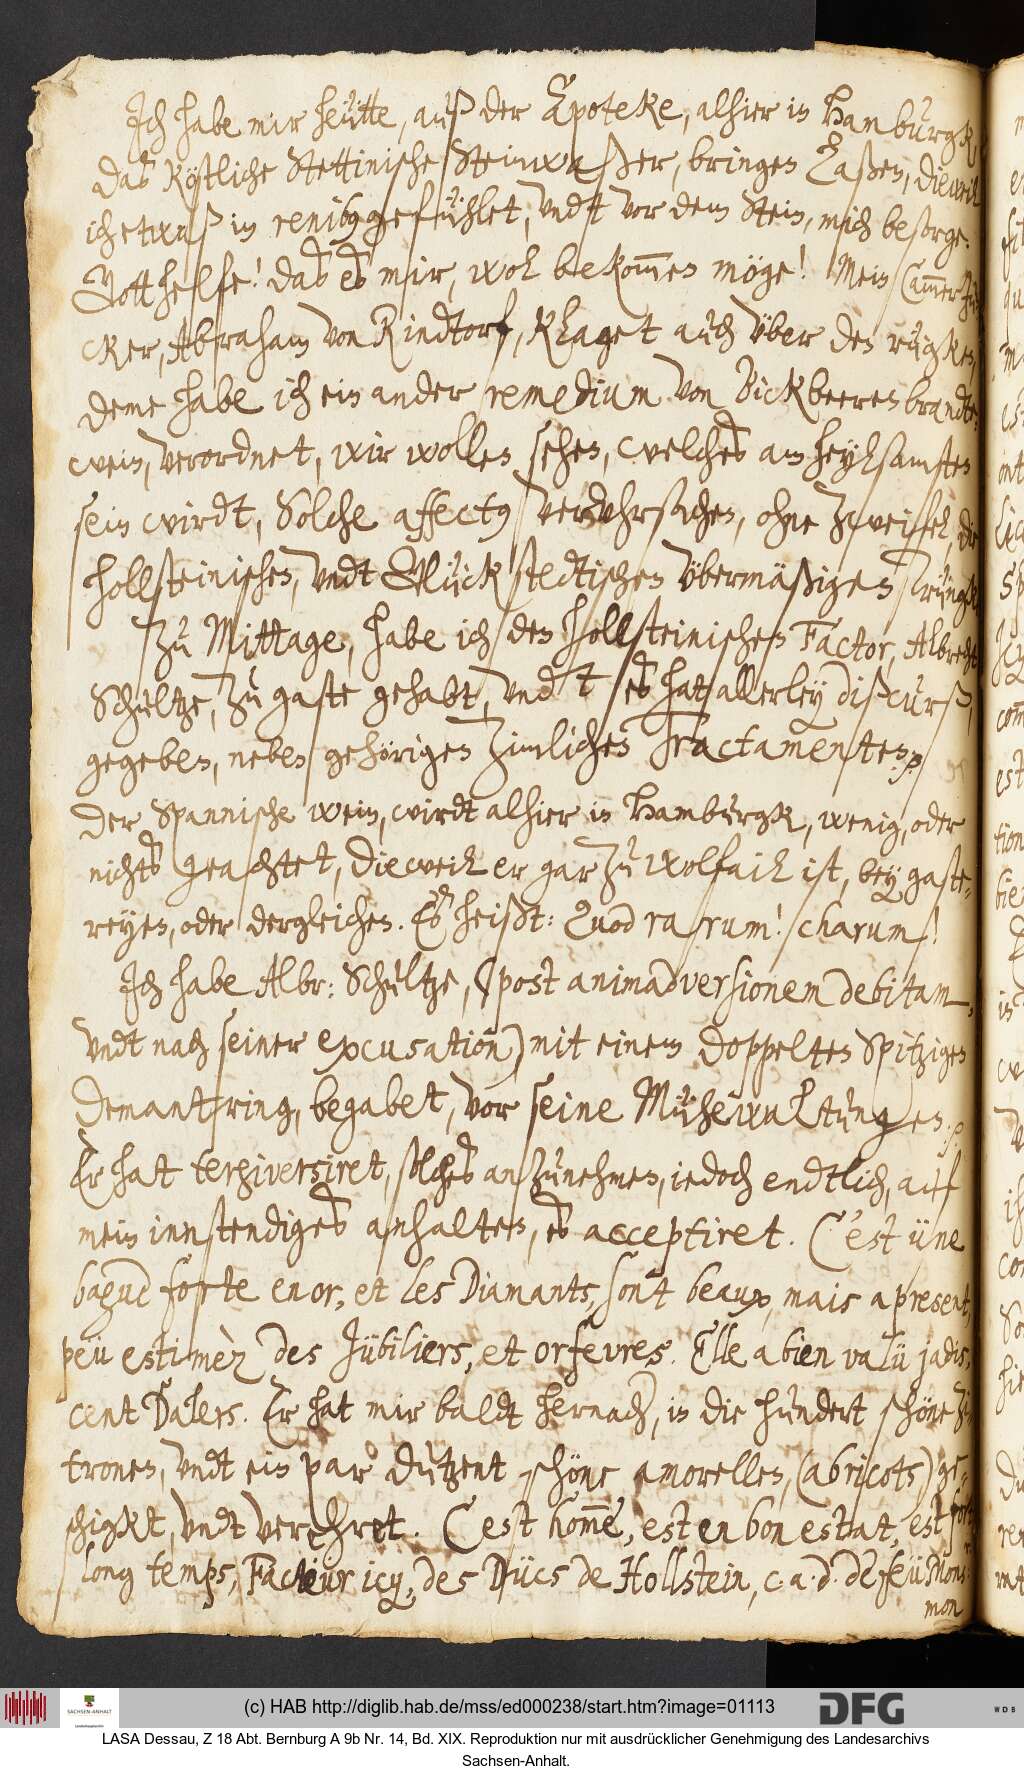 Ich habe mir heütte, auß der Apoteke, alhier in Hamburgk
das köstliche Stettinische Steinwaßer, bringen laßen, dieweil
ich etwaß in renibus gefühlet, undt vor dem Stein, mich besorge.
Gott helfe! das es mir, wol bekom̄en möge! Mein Cam̄erjun-
cker, Abraham von Rindtorf, klaget auch über den rügken,
deme habe ich ein ander remedium von Bickbeerenbrandte-
wein, verordnet, wir wollen sehen, welches am heylsamsten
sein wirdt, Solche affectus veruhrsachen, ohne zweiffel, die
hollsteinischen, undt Glückstedtischen übermäßigen Trüngke
Zu Mittage, habe ich den hollsteinischen Factor, Albrecht
Schultze, zu gaste gehabt, undt es hat allerley discurß,
gegeben, neben gehörigen zimlichen Tractamenten. p.
Der Spannische wein, wirdt alhier in Hamburgk, wenig, oder
nichts geachtet, dieweil er gar zu wolfail ist, bey gaste-
reyen, oder dergleichen. Es heißt: Quod rarum! charum!
Ich habe Albr: Schultze, (post animadversionem debitam,
undt nach seiner excusation) mit einem doppelten Spitzigen
Demantring, begabet, vor seine Mühewaltungen. p
Er hat tergiversiret, solches anzunehmen, iedoch endtlich, auf
mein innstendiges anhalten, es acceptiret. C'est üne
bague forte en or, et les Diamants, sont beaux, mais a present,
peü estimèz des Jübiliers, et orfevres. Elle a bien valü jadis,
cent Dalers. Er hat mir baldt hernach, in die hundert schöne Zi-
tronen, undt ein par dutzent schöne amorellen, (abricots) ge-
schigkt, undt verehret. C'est hom̄e, est en bon estat, est fort
long temps, Facteur icy, des Dücs de Hollstein, c.a.d. de feü Mons:r
mon
(c) HAB http://diglib.hab.de/mss/ed000238/start.htm?image=01113
SACHSEN-ANHALT
DFG
WDB
LASA Dessau, Z 18 Abt. Bernburg A 9b Nr. 14, Bd. XIX. Reproduktion nur mit ausdrücklicher Genehmigung des Landesarchivs
Sachsen-Anhalt.